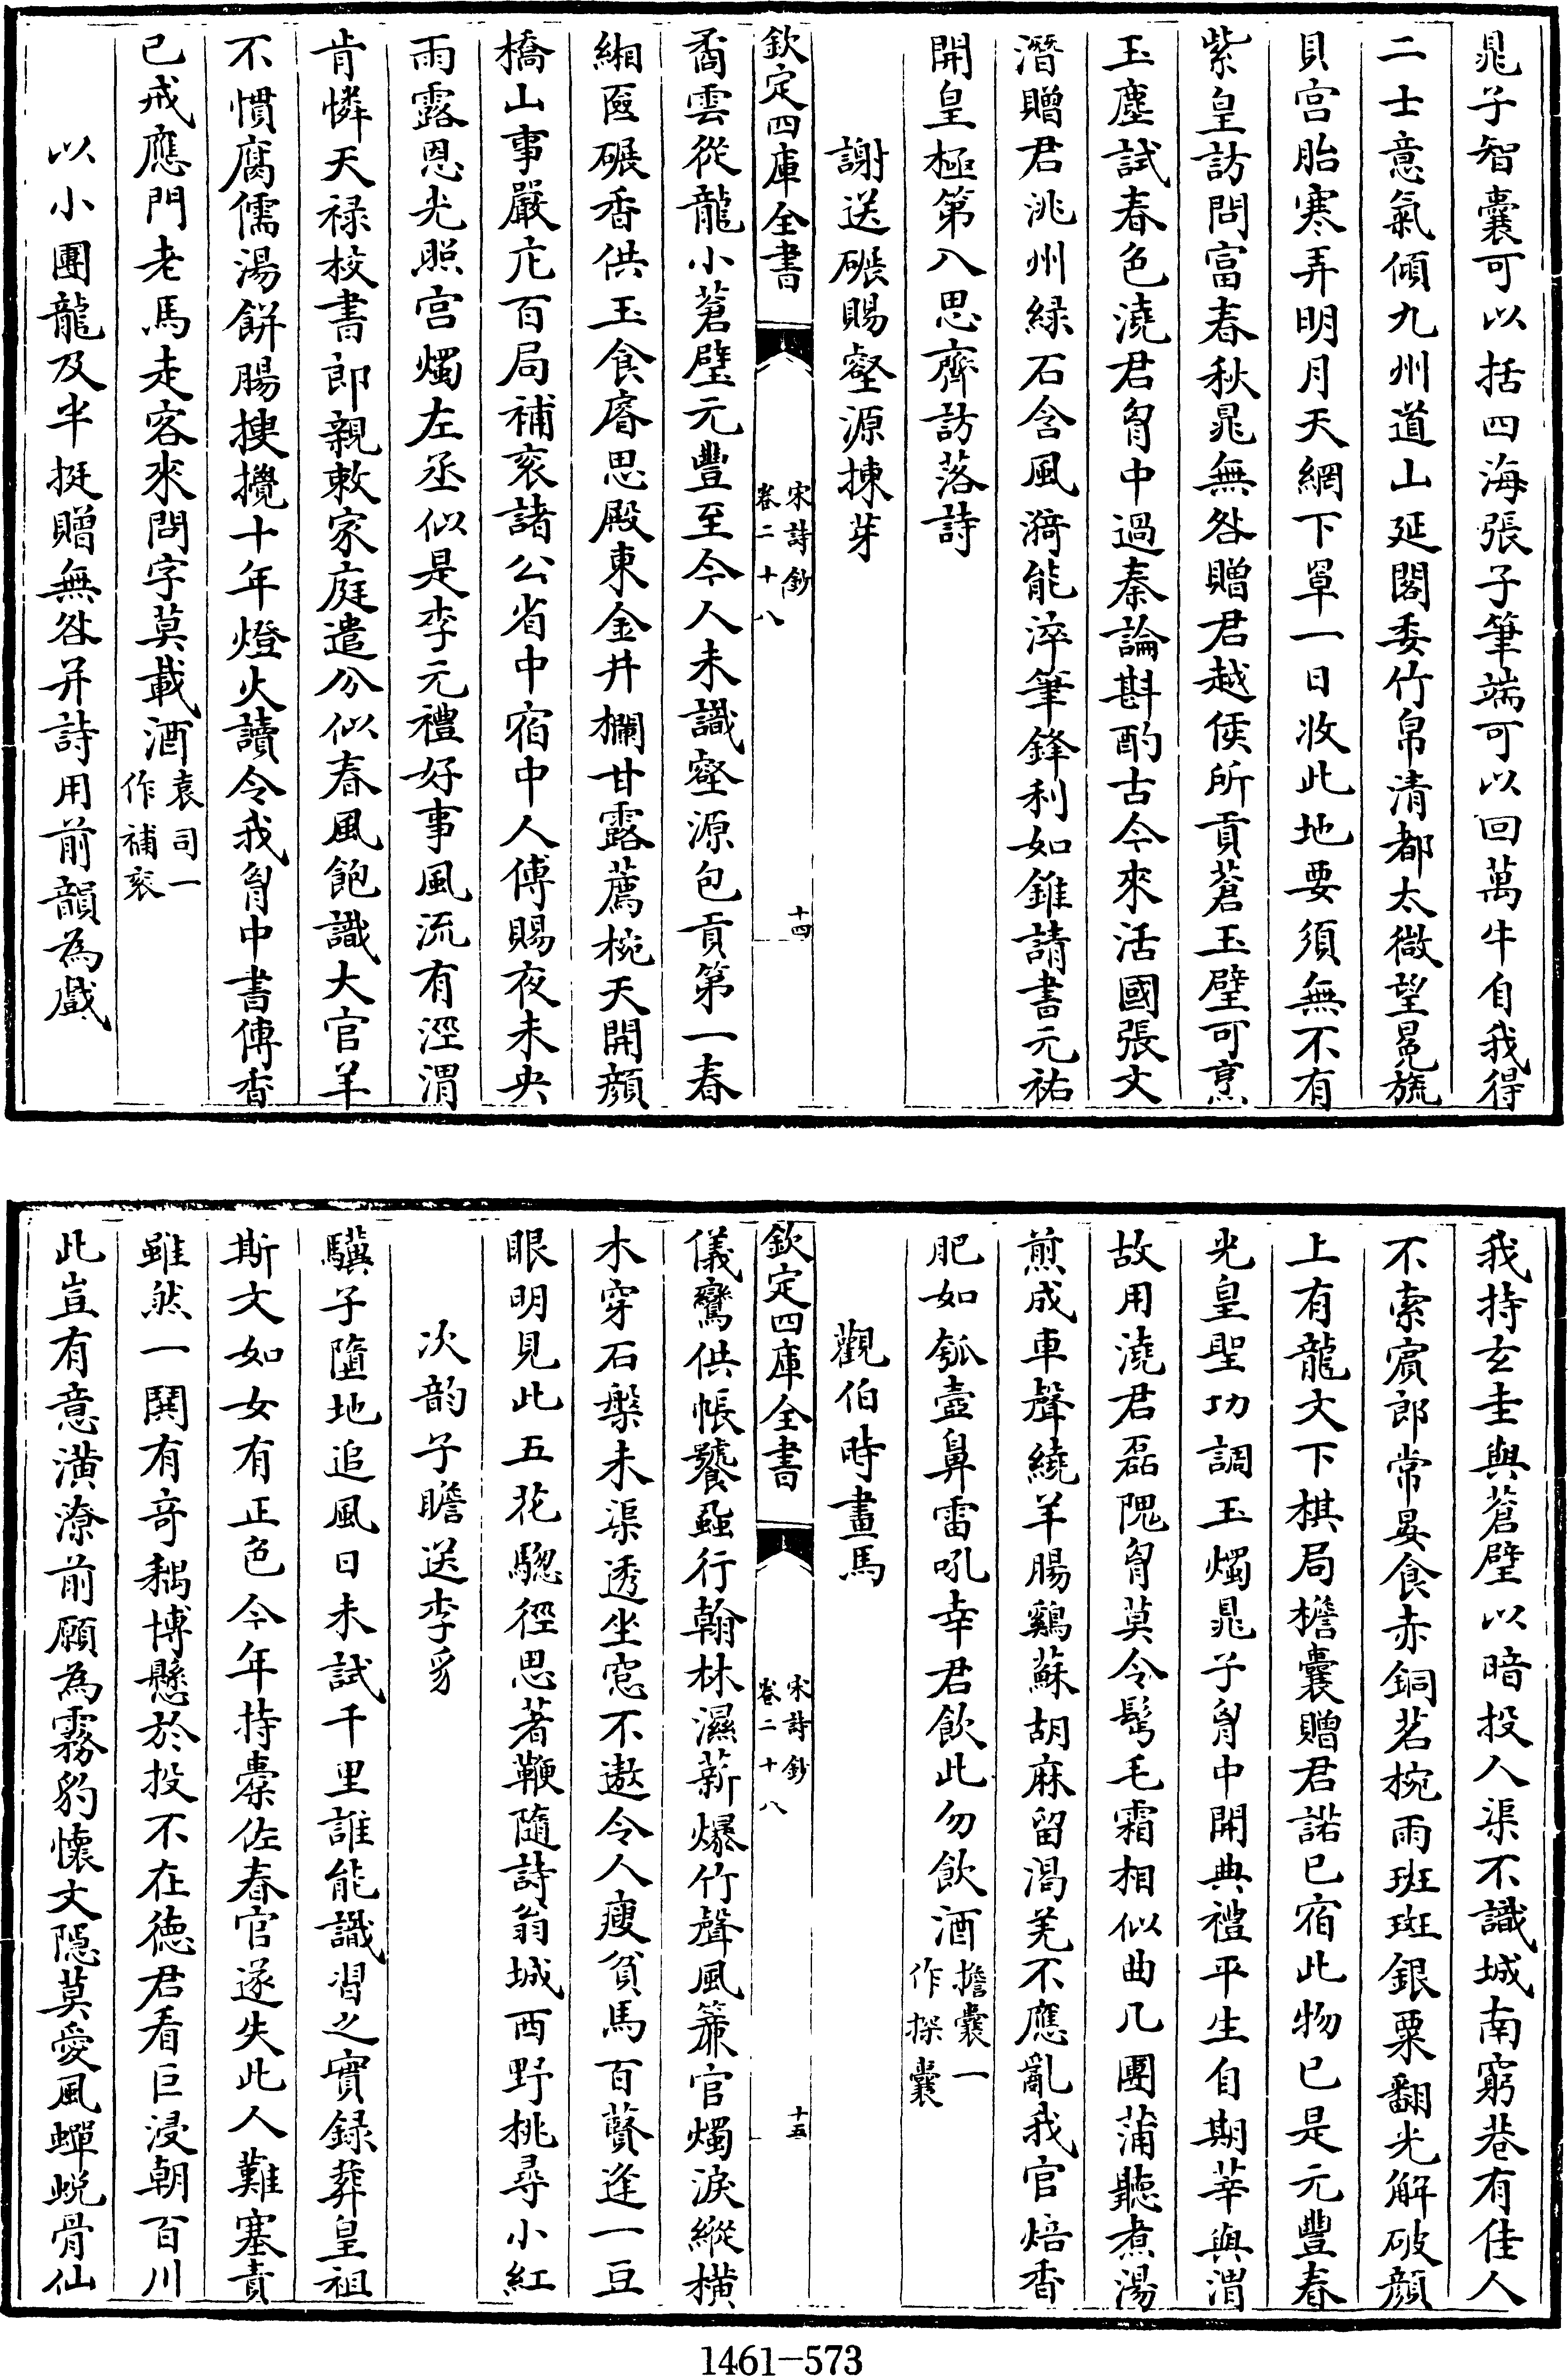 晁子智囊可以括四海張子筆端可以回萬牛自我得
二士意氣傾九州道山延閣委竹帛清都太微望冕旒
貝宫胎寒弄明月天網下罩一日收此地要須無不有
紫皇訪問富春秋晁無咎贈君越侯所貢蒼玉璧可烹
玉塵試春色澆君胷中過秦論斟酌古今來活國張文
潛贈君洮州緑石含風漪能淬筆鋒利如錐請書元祐
開皇極第入思齊訪落詩
謝送碾賜壑源揀芽
欽定四庫全書
宋詩鈔
卷二十八
十四
矞雲從龍小蒼璧元豐至今人未識壑源包貢第一春
緗匳碾香供玉食睿思殿東金井欄甘露薦椀天開顔
橋山事嚴庀百局補衮諸公省中宿中人傳賜夜未央
雨露恩光照宫燭左丞似是李元禮好事風流有涇渭
肯憐天禄校書郎親敕家庭遣分似春風飽識大官羊
不慣腐儒湯餅腸搜攪十年燈火讀令我胷中書傳香
已戒應門老馬走客來問字莫載酒袁司一
作補衮
以小團龍及半挺贈無咎并詩用前韻為戲
我持玄圭與蒼璧以暗投人渠不識城南窮巷有佳人
不索賔郎常晏食赤銅茗椀雨斑斑銀粟翻光解破顔
上有龍文下棋局檐囊贈君諾已宿此物已是元豐春
光皇聖功調玉燭晁子胷中開典禮平生自期莘與渭
故用澆君磊隗胷莫令鬂毛霜相似曲几團蒲聽煮湯
煎成車聲繞羊腸鷄蘇胡麻留渴羌不應亂我官焙香
肥如瓠壺鼻雷吼幸君飲此勿飲酒擔囊一
作探囊
觀伯時畫馬
欽定四庫全書
宋詩鈔
卷二十八
十五
儀鸞供帳饕蝨行翰林濕薪爆竹聲風簾官燭淚縱橫
木穿石槃未渠透坐窓不遨令人瘦貧馬百䝰逢一豆
眼明見此五花驄徑思著鞭隨詩翁城西野桃尋小紅
次韵子瞻送李豸
驥子墮地追風日未試千里誰能識習之實録葬皇祖
斯文如女有正色今年持橐佐春官遂失此人難塞責
雖然一鬨有奇耦博懸於投不在徳君看巨浸朝百川
此豈有意潢潦前願為霧豹懷文隠莫愛風蟬蜕骨仙
1461-573